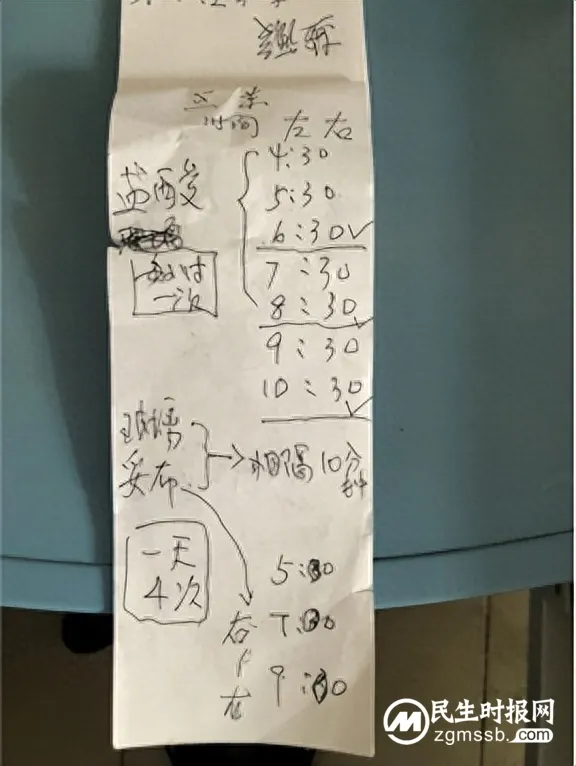 时间 左右
盐酸
4:30
5:30
6:30
每小时
一次
7:30
8:30
9:30
10:30
玻璃
妥布
相隔10分钟
一天
4次
5:30
7:30
9:30
右
左
民生时报网
zgmssb.com